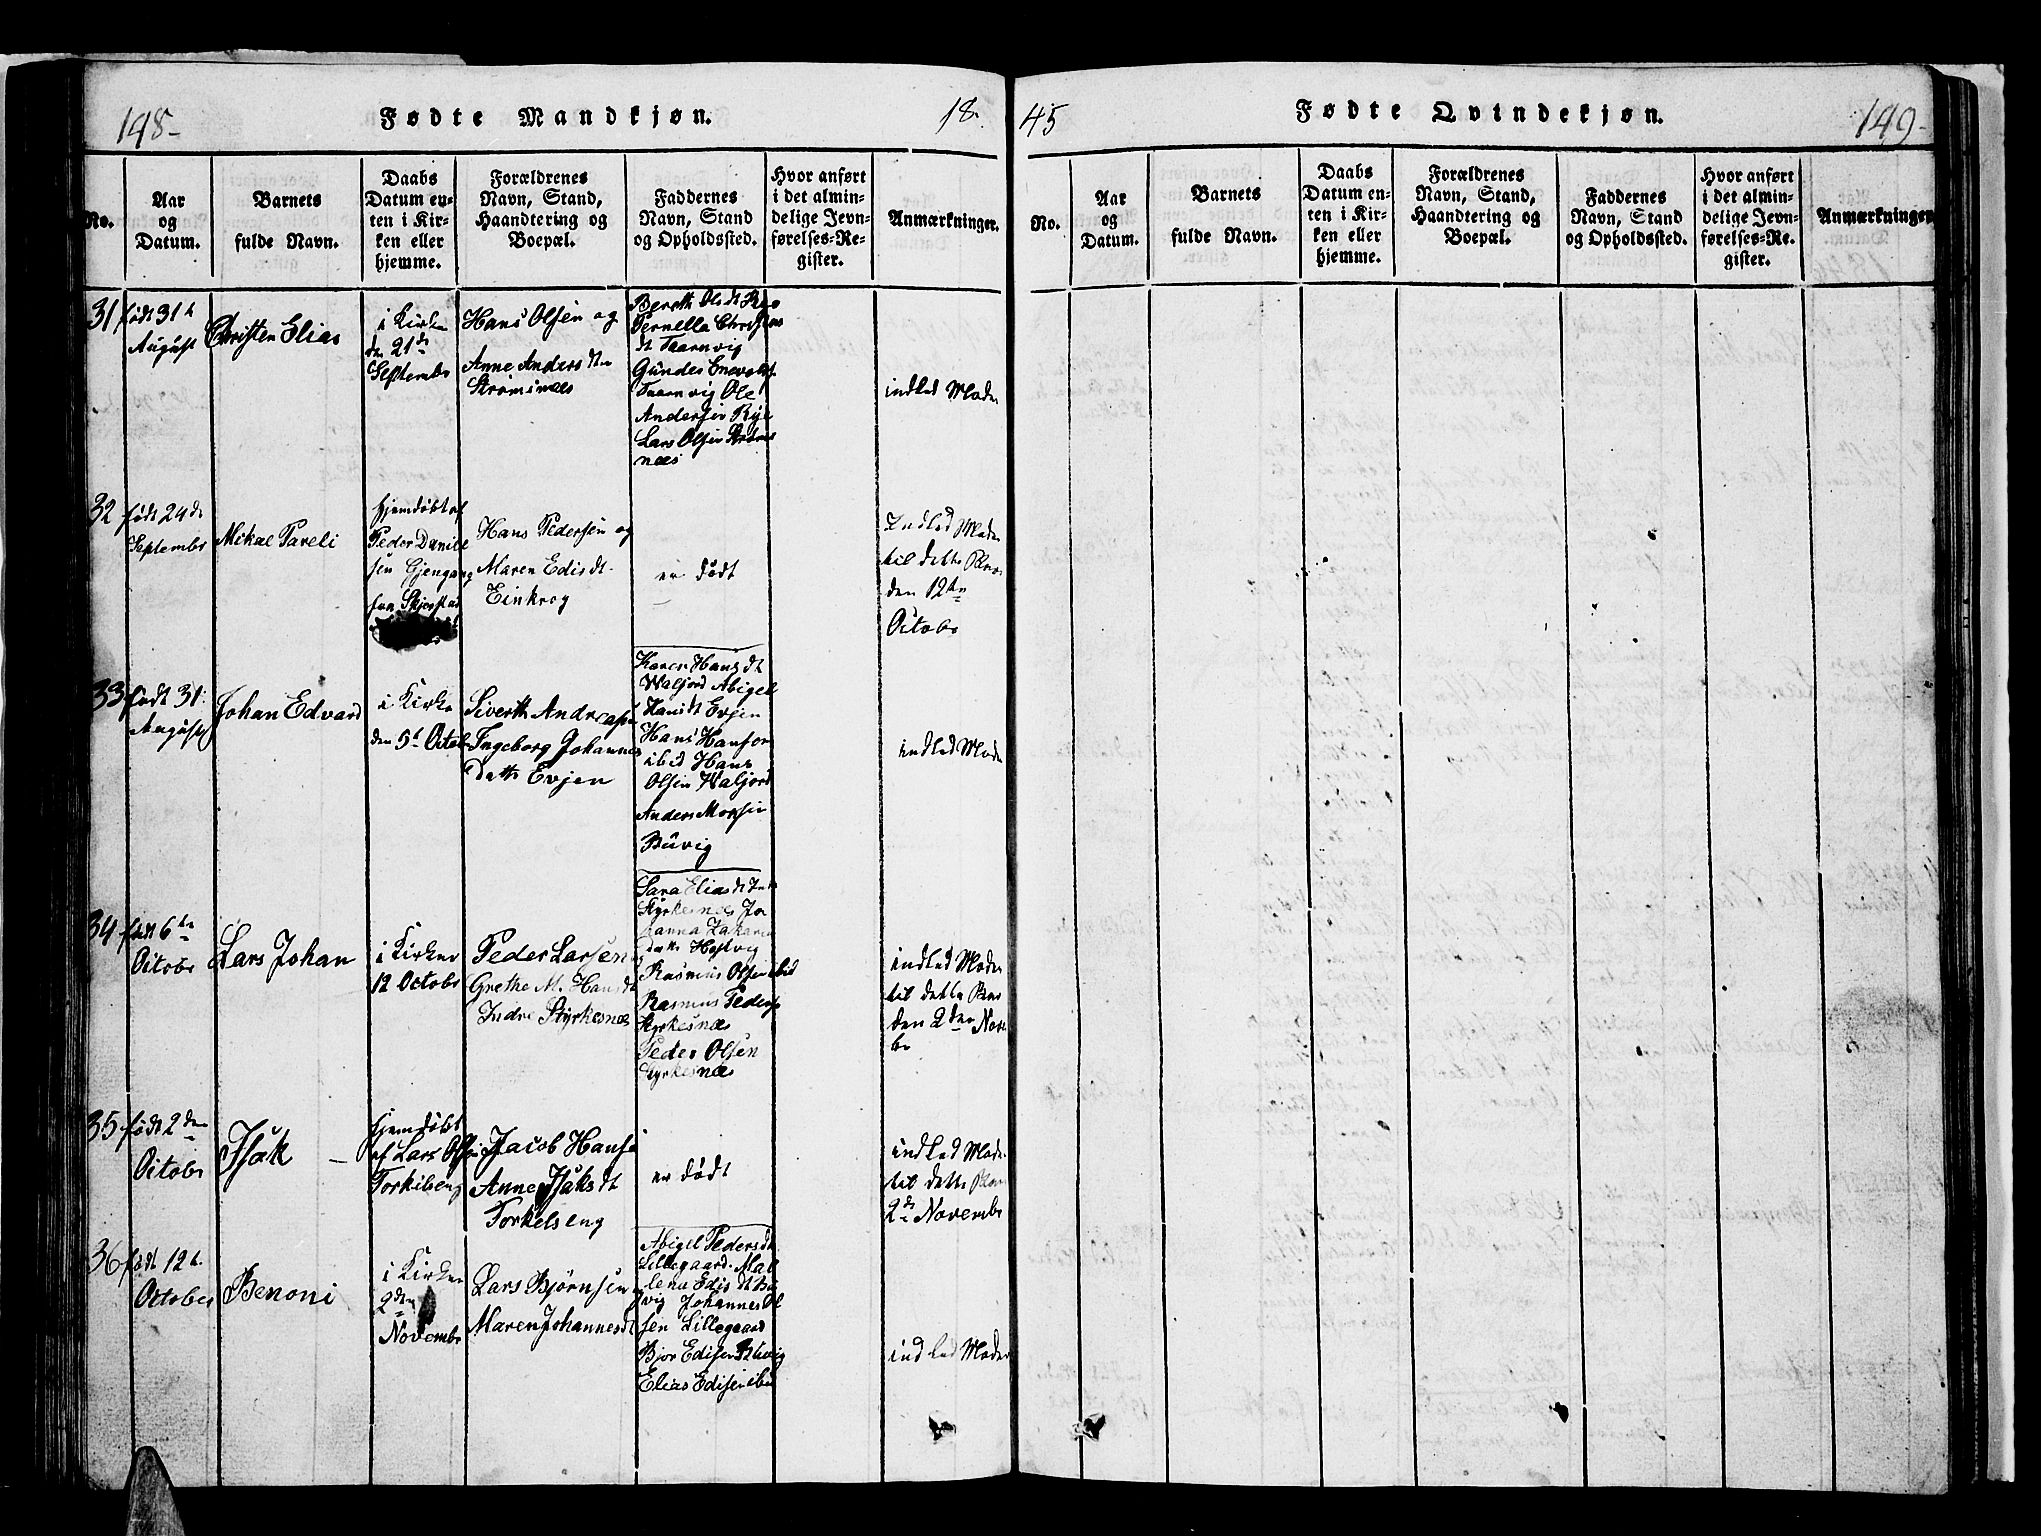 148-
Fødte Mandkjøn.
18
No.
Aar og Datum.
Barnets fulde Navn.
Daabs Datum enten i Kirken eller hjemme.
Forældrenes Navn, Stand, Haandtering og Boepæl.
Faddernes Navn, Stand og Opholdssted.
Hvor anført i det almindelige Jevnførelses-Register.
Anmærkninger.
31
født 31t
August
Christen Elias
i Kirken
den 21de
Septembr
Hans Olsen og
Anne Andersdtr
Strømsnæs
Bereth Olsdt
Pernella Christens
dt Taarnvig
Gunder Enevols
Taarnvig Ole
Andersen
Lars Olsen Strøms
næs
indled Moder
32
født 24de
Septembr
Mikal Pareli
hjemdøbt af
Peder Daniel
sen Gjengang
fra Skjerstad
Hans Pedersen og
Maren Edisdt.
Einkrog
er Født
Indled Moder
til dette Barn
den 12te
Octobr
33
født 31:
August
Johan Edvard
i Kirke
den 5t Octob
Siverth Andreassen
Ingeborg Johannes
Datter Evjen
Karen Hansdt
Waljord Abigel
Hansdt Evjen
Hans Hansen
ibid Hans
Olsen Waljord
Anders
Buvig
indled Moder
34
født 6te
Octobr
Lars Johan
i Kirken
12 Octobr
Peder Larsen
Grethe M. Hansdt
Indre Styrkesnæs
Sara Eliasdt Indr
Styrkesnæs Jo
hanna Zakaria
datter
Rasmus Olsen ibid
Rasmus Peders
Styrkesnæs
Peder Olsen
Styrkesnæs
indled Moder
til dette Barn
den 2den Nove
br
35
født 2den
Octobr
Isak
hjemdøbt
af Lars Olsen
Torkilseng
Jacob Hansen
Anne Isaksdt
Torkelseng
er dødt
indled Moder
til dette Barn
2de Novembr
36
født 12t.
October
Benoni
i Kirken
2den
Novembr
Lars Bjørnsen
Maren Johannesdt
Abigel Pedersdt
Lillegaard. Mal
lena Edisdt Bu
vig Johannes Ol
sen Lillegaard
Bjør Edisen Buvig
Elias Edisen ibid
indled Moder
45
Fødte Qvindekjøn.
149-
No.
Aar og Datum.
Barnets fulde Navn.
Daabs Datum enten i Kirken eller hjemme.
Forældrenes Navn, Stand, Haandtering og Boepæl.
Faddernes Navn, Stand og Opholdssted.
Hvor anført i det almindelige Jevnførelses-Register.
Anmærkninger